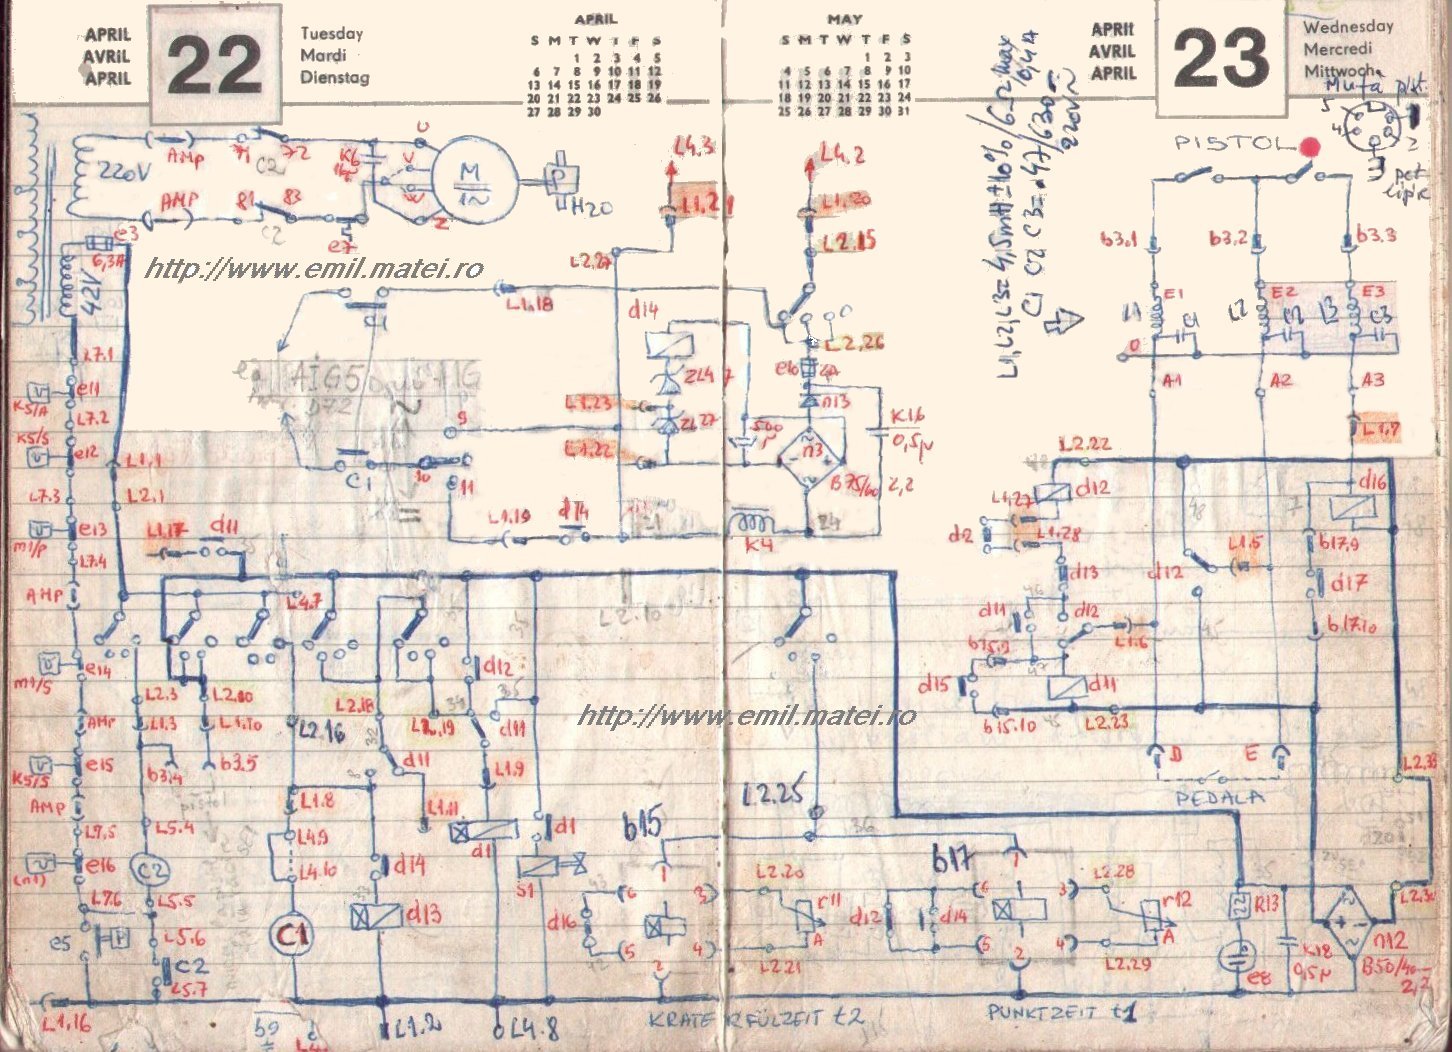 APRIL
AVRIL
APRIL
22
Tuesday
Mardi
Dienstag
APRIL
S M T W T F S
1 2 3 4 5
6 7 8 9 10 11 12
13 14 15 16 17 18 19
20 21 22 23 24 25 26
27 28 29 30
MAY
S M T W T F S
1 2 3
4 5 6 7 8 9 10
11 12 13 14 15 16 17
18 19 20 21 22 23 24
25 26 27 28 29 30 31
APRIL
AVRIL
APRIL
23
Wednesday
Mercredi
Mittwoch
Mufa pist.
5
4
2
PISTOL
L1, L2, L3 = 4,5mH ±10% / 6-2 max
C1 C2 C3 = .47/630-
220V~
220V
AMP
71
72
C2
K6
U
V
Z
M
1~
H2O
AMP
81
83
C2
e7
e3
6,3A
42V
http://www.emil.matei.ro
L4.3
L1.21
L2.27
L4.2
L1.20
L2.15
b3.1
b3.2
b3.3
L1.18
C1
d14
L2.26
e10
n13
ZL47
ZL27
L1.23
L1.22
500
n3
B75/60
2,2
K16
0,5µ
E1
E2
E3
L1
L2
L3
C1
C2
C3
0
A1
A2
A3
L1.7
L7.1
e11
K5/A
L7.2
K5/5
e12
L1.1
L2.1
L7.3
e13
m1/p
L7.4
AMP
AIG5
D72
9
10
11
C1
L1.19
d14
K4
24
L1.17
d11
L2.22
d12
L1.27
L1.28
d2
d13
d11
d12
L1.6
b15.9
d15
d11
b15.10
L2.23
d12
L1.5
d16
b17.9
d17
b17.10
L4.7
L2.10
e14
m1/5
AMP
e15
K5/5
AMP
L7.5
e16
(n1)
L7.6
e5
L2.3
L1.3
b3.4
L2.20
L1.10
b3.5
L5.4
C2
L5.5
L5.6
C2
L5.7
L1.16
L2.16
L1.8
L4.9
L4.10
C1
L2.18
d11
L1.11
d14
d13
L2.19
d12
d11
L1.9
d1
d1
S1
http://www.emil.matei.ro
L2.25
36
b15
1
6
3
5
4
2
d16
L2.20
r11
A
L2.21
b17
1
6
3
5
4
2
d12
d14
L2.28
r12
A
L2.29
D
E
PEDALA
L2.33
R13
e8
K18
0,5µ
n12
B50/40-
2,2
L1.2
L4.8
KRATERFÜLZEIT t2
PUNKTZEIT t1